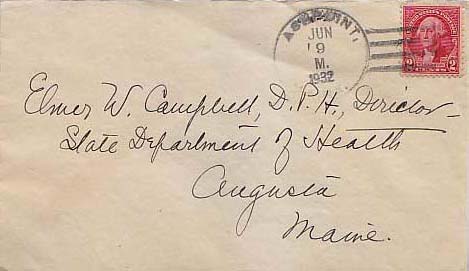 JUN
9
M.
1932
2 2
CENTS
Elmer W. Campbell, D.P.H., Director
State Department of Health
Augusta
Maine.